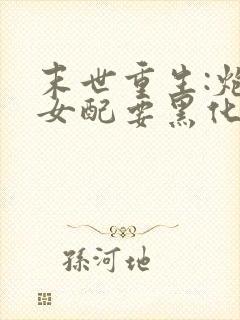 末世重生:炮
女配要黑化
孫河地